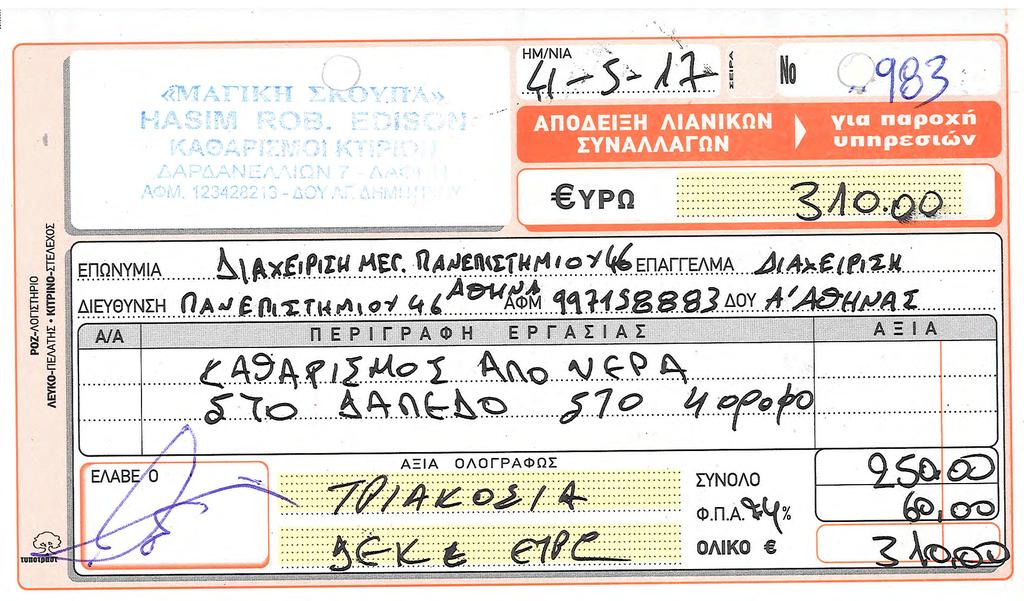 «ΜΑΓΙΚΗ ΣΚΟΥΠΑ»
HASIM ROB. EDISON
ΚΑΘΑΡΙΣΜΟΙ ΚΤΙΡΙΩΝ
ΔΑΡΔΑΝΕΛΛΙΩΝ 7 - ΔΑΦΝΗ
ΑΦΜ. 123428213 - ΔΟΥ ΑΓ. ΔΗΜΗΤΡΙΟΥ
ΗΜ/ΝΙΑ 4-5-17 ΣΕΙΡΑ No 983
ΑΠΟΔΕΙΞΗ ΛΙΑΝΙΚΩΝ ΣΥΝΑΛΛΑΓΩΝ για παροχή υπηρεσιών
€ΥΡΩ 310.00
ΡΟΖ-ΛΟΓΙΣΤΗΡΙΟ
ΛΕΥΚΟ-ΠΕΛΑΤΗΣ • ΚΙΤΡΙΝΟ-ΣΤΕΛΕΧΟΣ
ΕΠΩΝΥΜΙΑ ΔΙΑΧΕΙΡΙΣΗ ΜΕΓ. ΠΑΝΕΠΙΣΤΗΜΙΟΥ 46 ΕΠΑΓΓΕΛΜΑ ΔΙΑΧΕΙΡΙΣΗ
ΔΙΕΥΘΥΝΣΗ ΠΑΝΕΠΙΣΤΗΜΙΟΥ 46 ΑΘΗΝΑ ΑΦΜ 997158883 ΔΟΥ Α' ΑΘΗΝΑΣ
Α/Α ΠΕΡΙΓΡΑΦΗ ΕΡΓΑΣΙΑΣ ΑΞΙΑ
ΚΑΘΑΡΙΣΜΟΣ ΑΠΟ ΝΕΡΑ
ΣΤΟ ΔΑΠΕΔΟ ΣΤΟ 4 οροφο
ΕΛΑΒΕ Ο
ΑΞΙΑ ΟΛΟΓΡΑΦΩΣ
ΤΡΙΑΚΟΣΙΑ
ΔΕΚΑ ΕΥΡΩ
ΣΥΝΟΛΟ 250.00
Φ.Π.Α. 24% 60,00
ΟΛΙΚΟ € 310.00
τυποτραστ